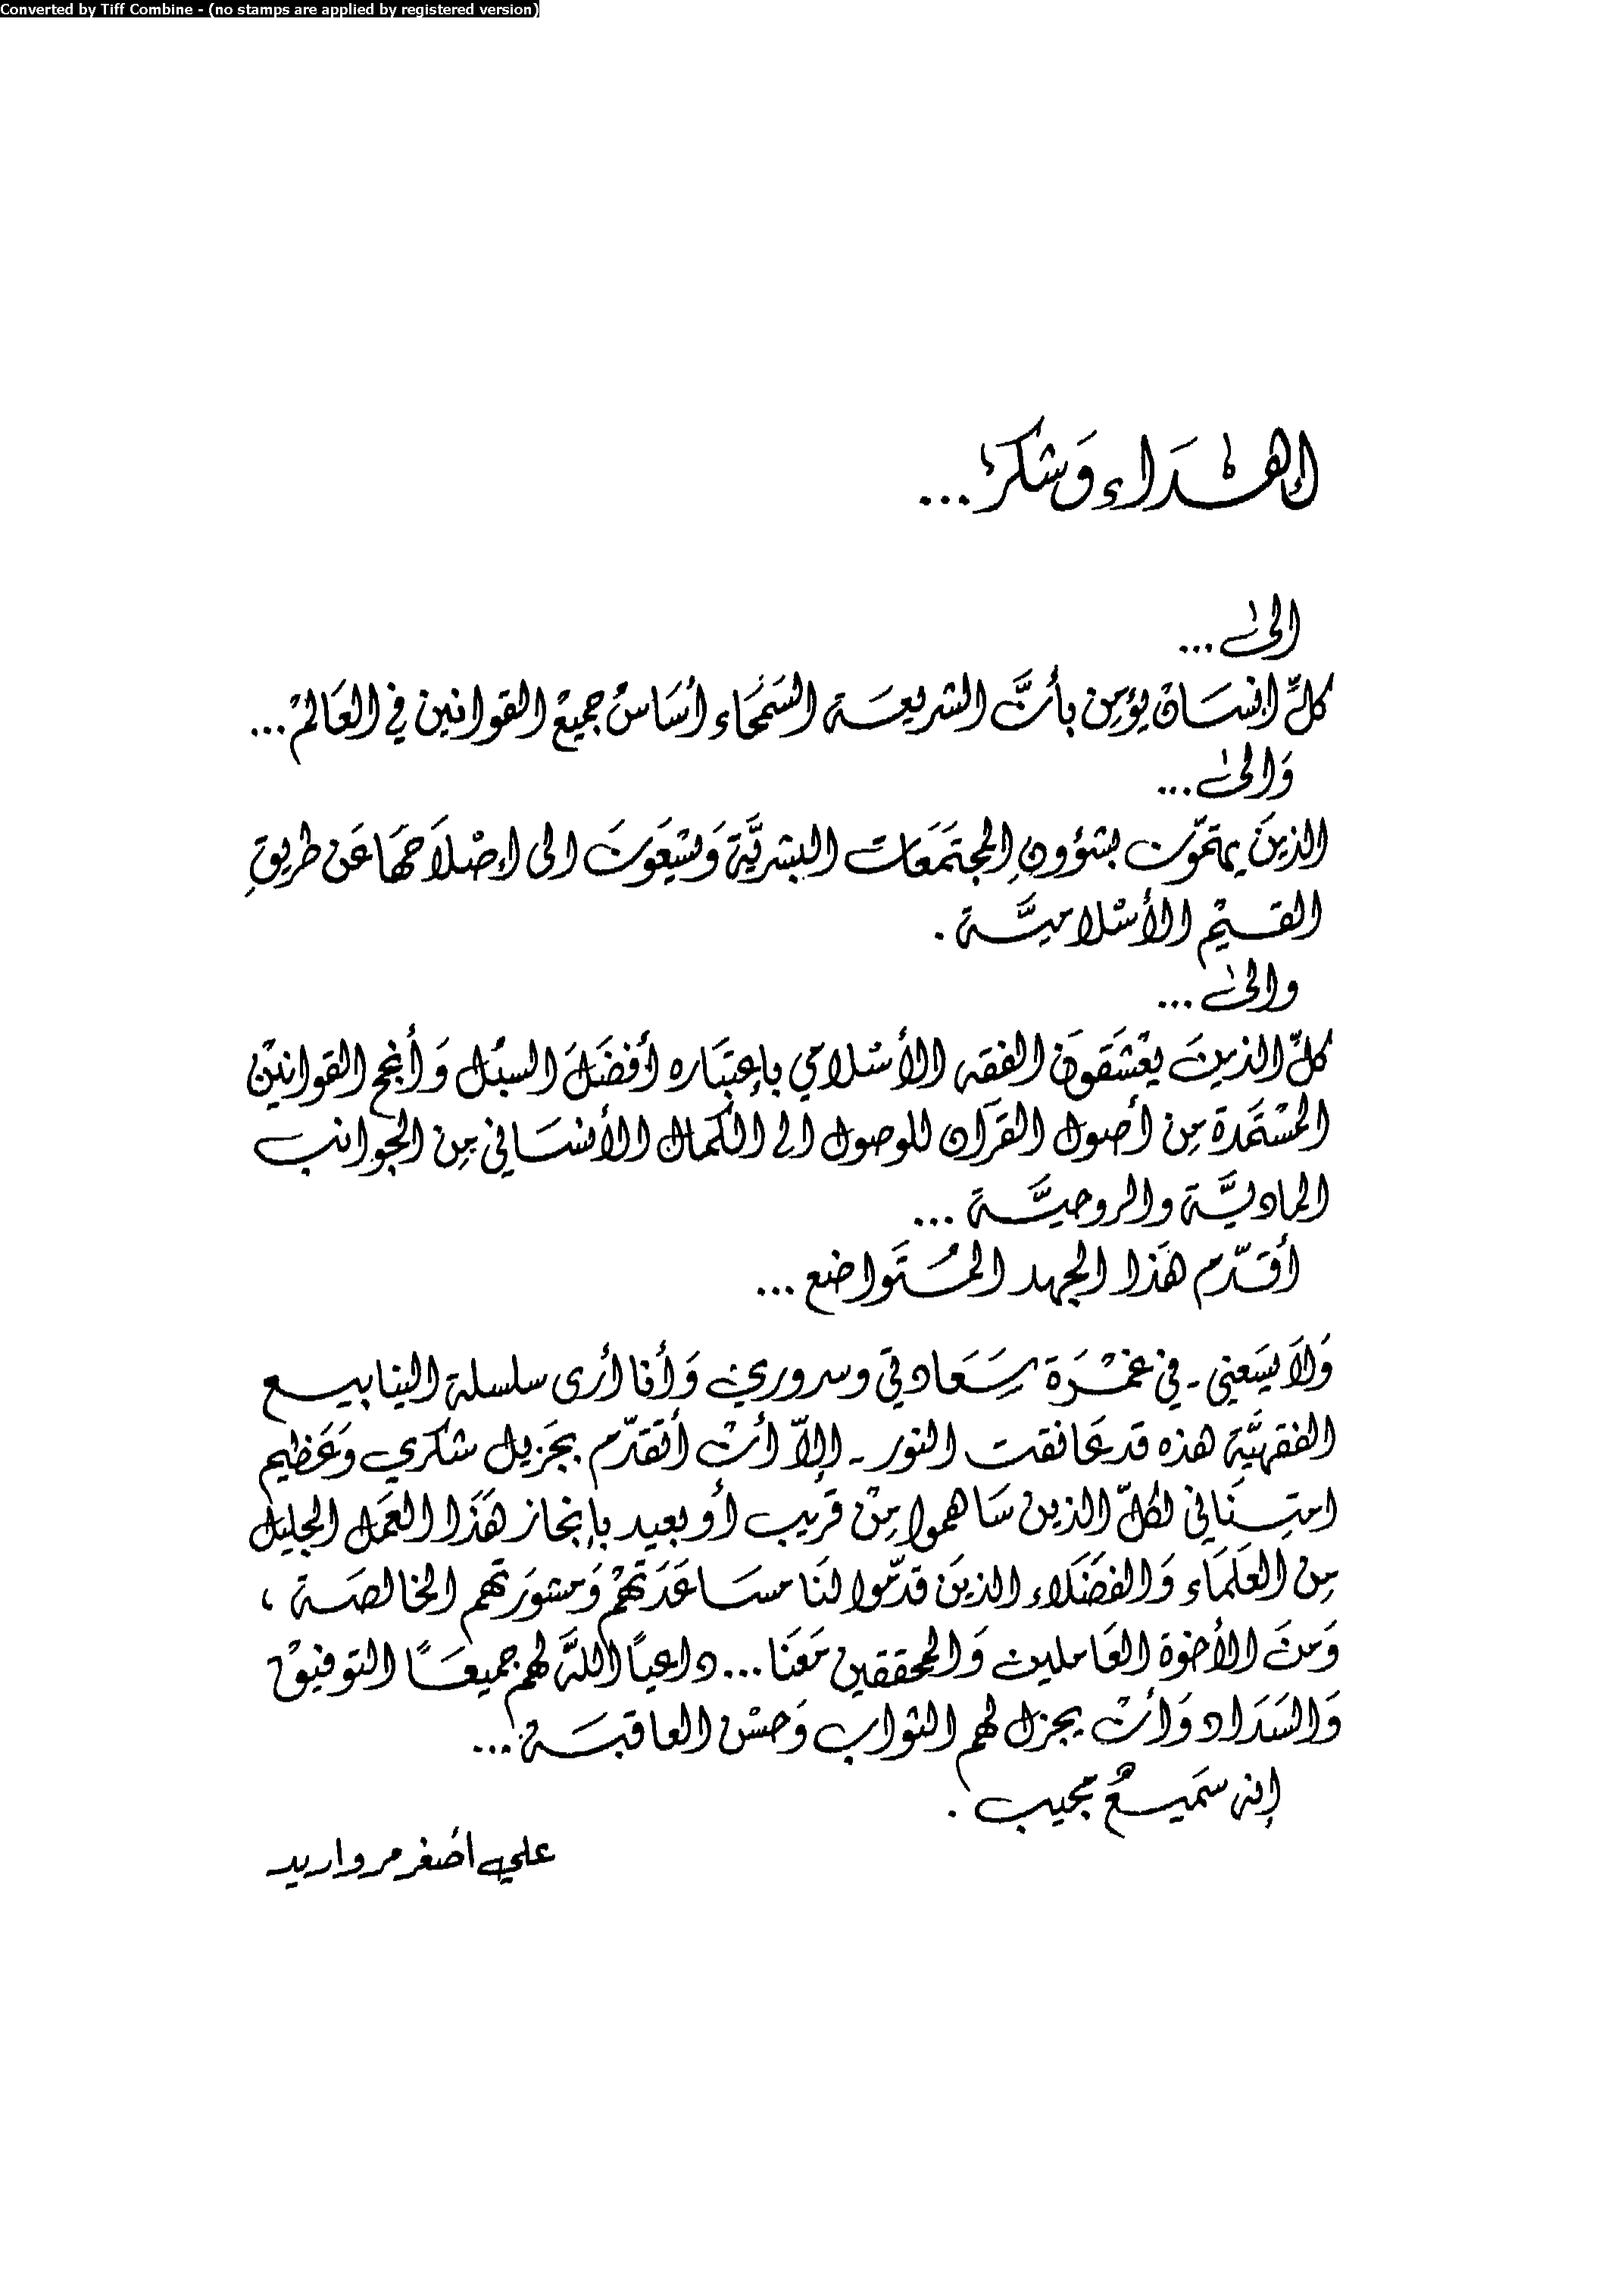 Converted by Tiff Combine - (no stamps are applied by registered version)
إهْدَاء وَشكرْ...
الىٰ...
كلِّ انِسَان يؤمِن بأنَّ الشريعَة السَمَحَاء أسَاسُ جميْع القوانين في العَالمْ...
وَالىٰ...
الذينَ يهتمّون بشؤونِ المجتَمَعَات البشريَّة وَيسْعَونَ الى إصْلاَحهَا عَن طريقِ
القيْم الأسْلاميَّة .
والىٰ...
كلِّ الذينَ يعْشَقونَ الفقه الأسْلامي بإعتبَاره أفضَلَ السبُل وَأنجح القوانيْن
المسْتَمَدة مِن أصول القرآن للوصول الى الكَمال الأنسَاني مِن الجوانب
الماديَّة والروحيَّة ...
أقدّم هَذا الجهد المُتَواضع ...
وَلاَ يسَعني - في غمْرَة سَعَادتي وسروري وَأنا أرى سلسلة الينابيع
الفقهيَّة هذه قد عَانقت النور - إلاّ أنْ أتقدّم بجَزيل شكري وَعَظيم
امتِنَاني لكلّ الذين سَاهموا مِنْ قريب أو بعيد بإنجاز هَذَا العَمَل الجليل
مِن العلَمَاء وَالفضَلاء الذينَ قدّموا لنَا مسَاعَدَتهُمْ وَمشورَتهم الخالصَة ،
وَمنَ الأخوَة العَاملين وَالمحققين مَعَنا ... داعياً اللّهَ لهم جميعَاً التوفيقْ
وَالسَدَاد وَأنْ يجزل لهم الثواب وَحسْن العاقبَة ...
إنه سَميعٌ مجّيب .
علي أصغر مرواريد